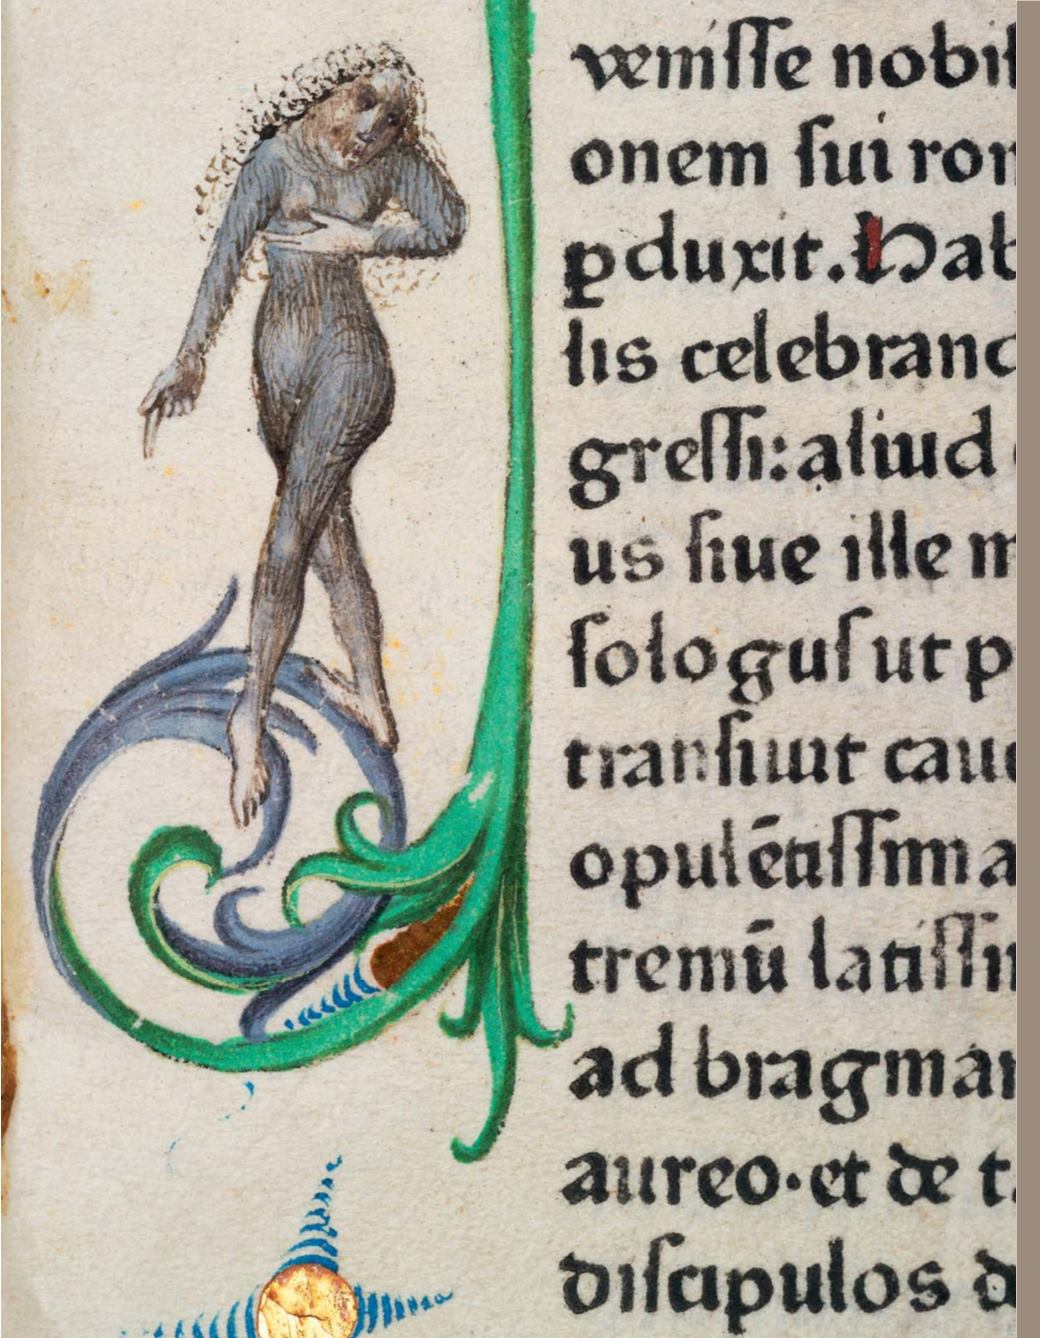 venisse nobil
onem sui ror
ꝑduxit. Hab
lis celebrand
gressi: aliud
us siue ille m
sologus ut p
transiuit cauc
opulētissima
tremū latissi
ad bragmar
aureo. et de t
discipulos d